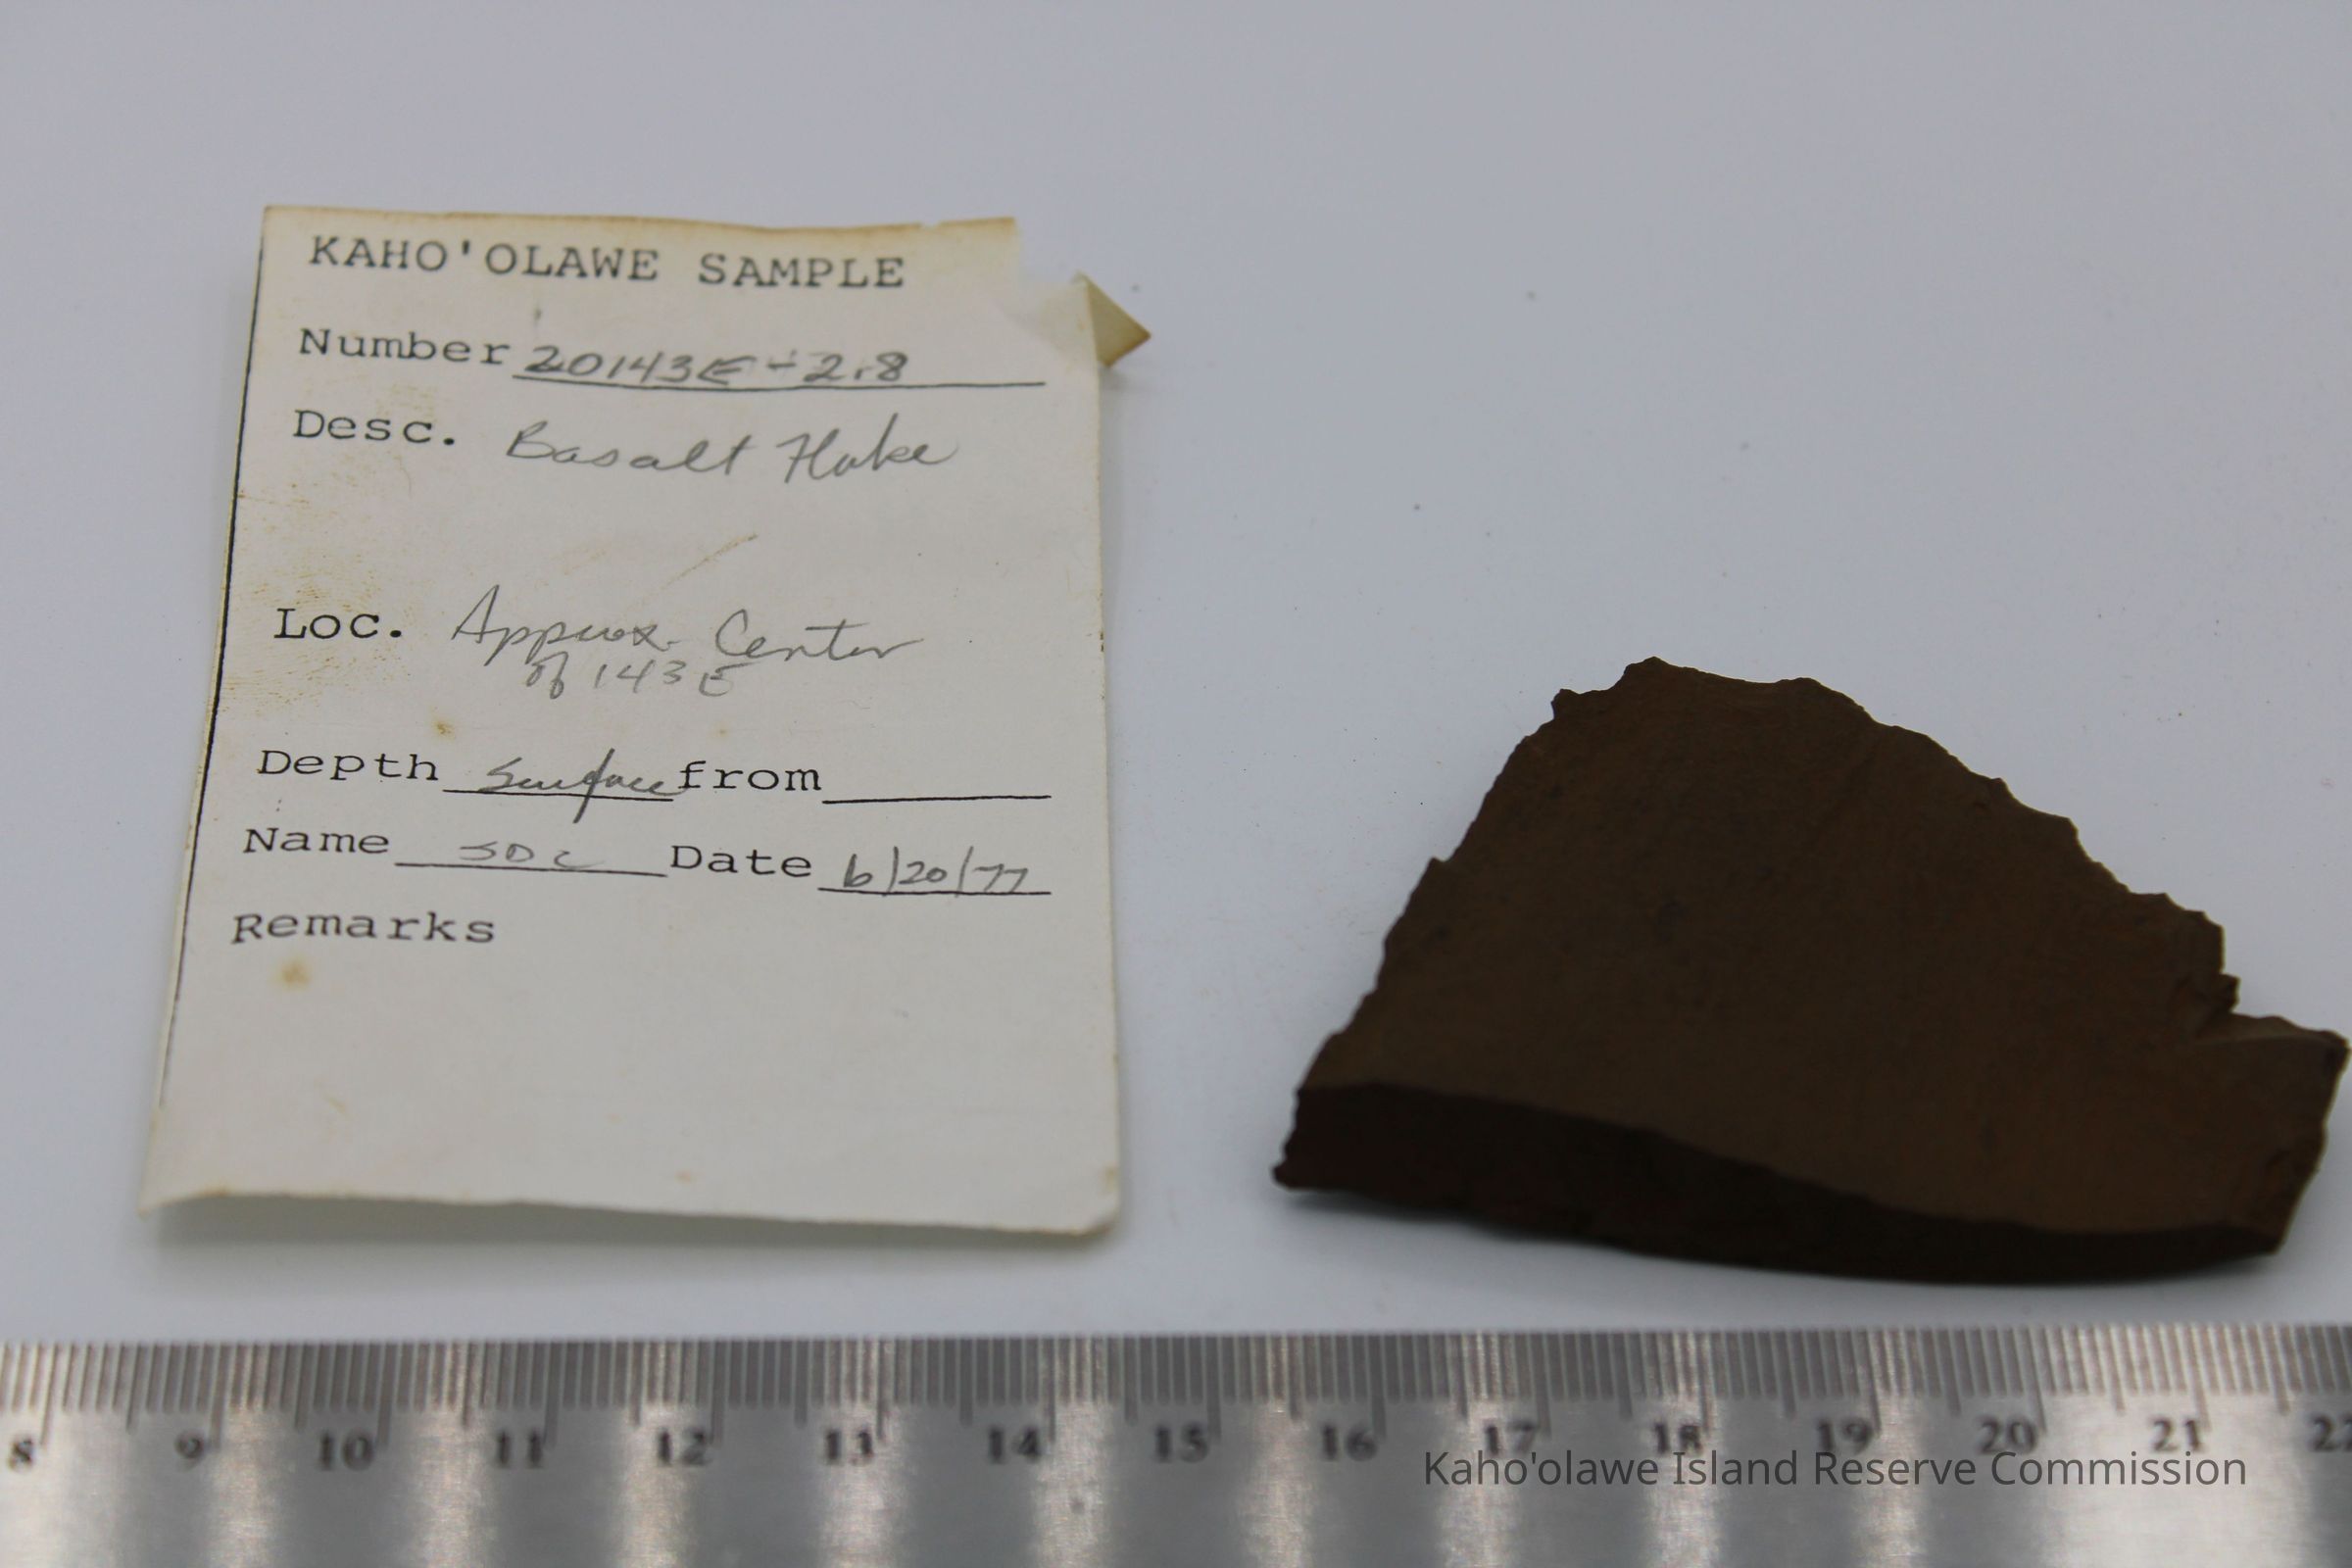 KAHO'OLAWE SAMPLE
Number 20143E-2.8
Desc. Basalt Flake
Loc. Approx. Center
of 143E
Depth Surface from
Name JDC Date 6/20/77
Remarks
8 9 10 11 12 13 14 15 16 17 18 19 20 21 22
Kaho'olawe Island Reserve Commission